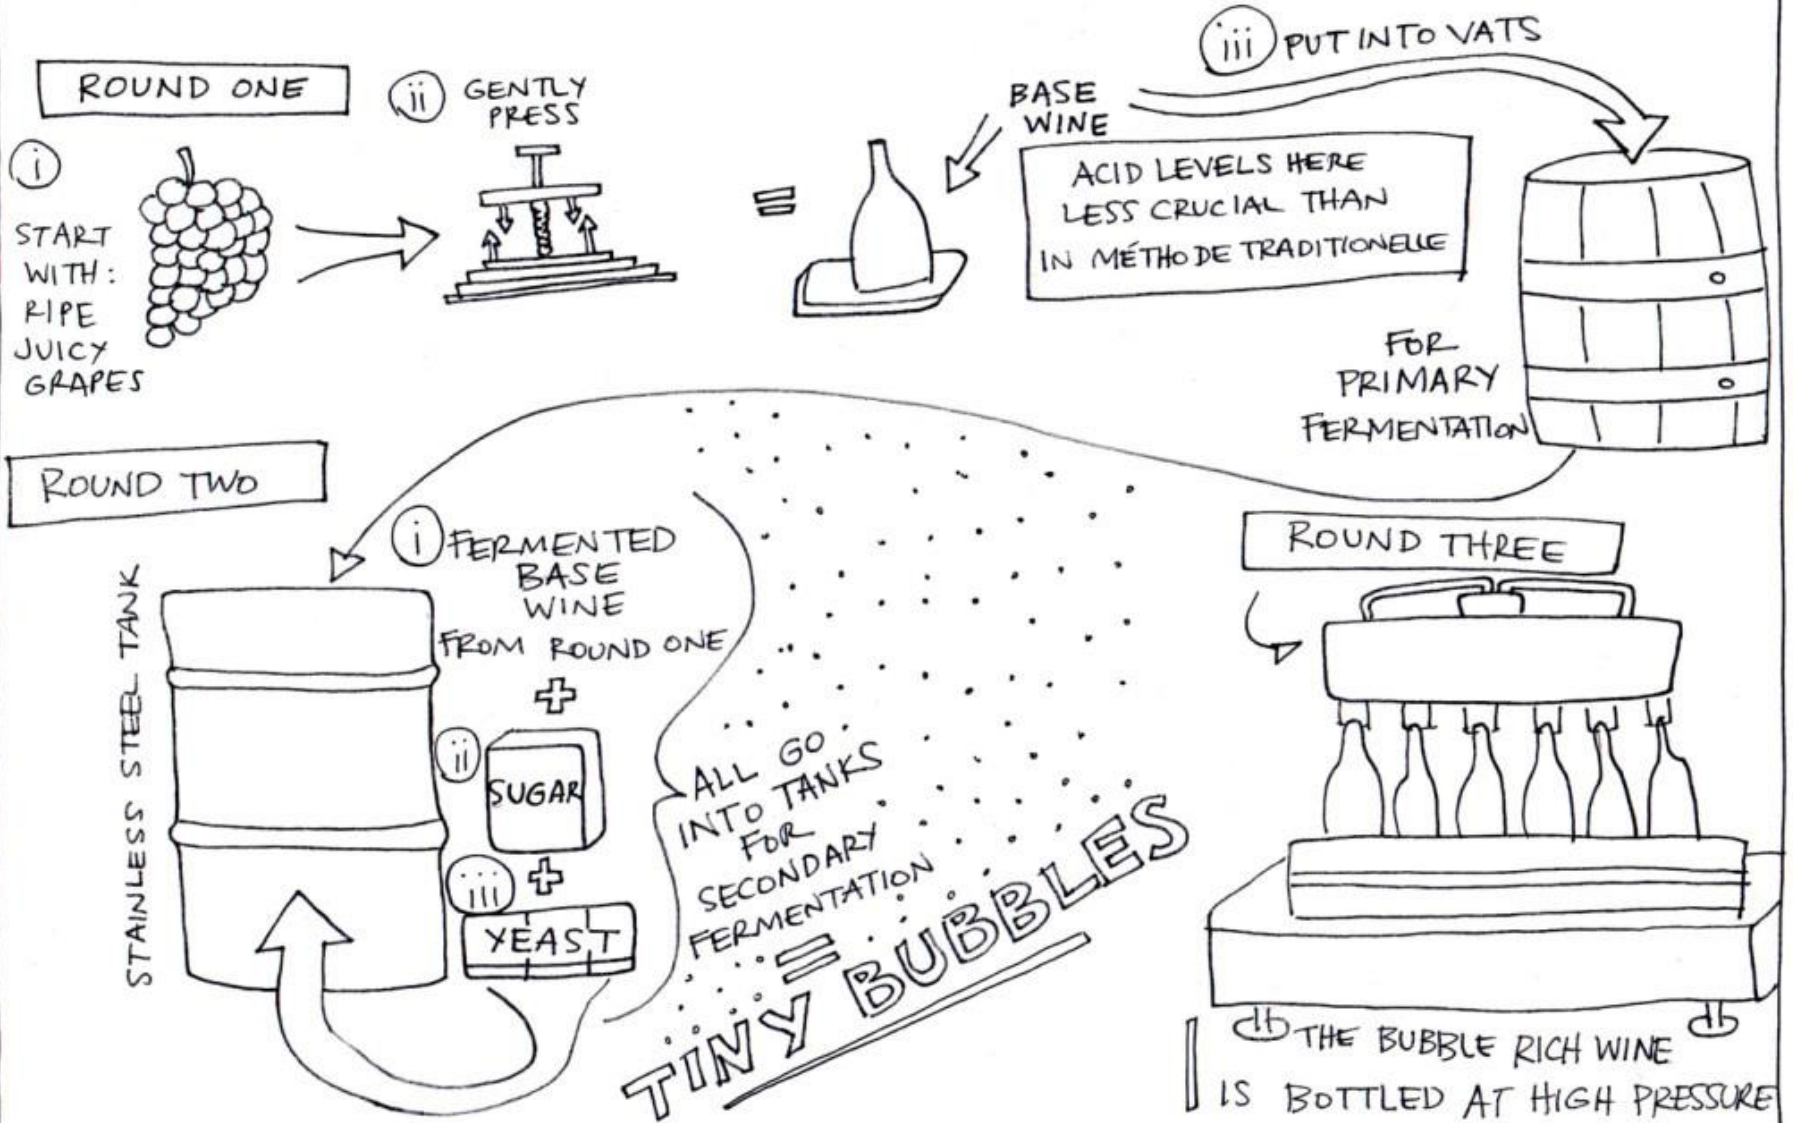 ROUND ONE
i
START
WITH:
RIPE
JUICY
GRAPES
ii
GENTLY
PRESS
=
BASE
WINE
ACID LEVELS HERE
LESS CRUCIAL THAN
IN MÉTHODE TRADITIONELLE
iii PUT INTO VATS
FOR
PRIMARY
FERMENTATION
ROUND TWO
STAINLESS STEEL TANK
i FERMENTED
BASE
WINE
FROM ROUND ONE
+
ii
SUGAR
+
iii
YEAST
ALL GO
INTO TANKS
FOR
SECONDARY
FERMENTATION
=
TINY BUBBLES
ROUND THREE
THE BUBBLE RICH WINE
IS BOTTLED AT HIGH PRESSURE